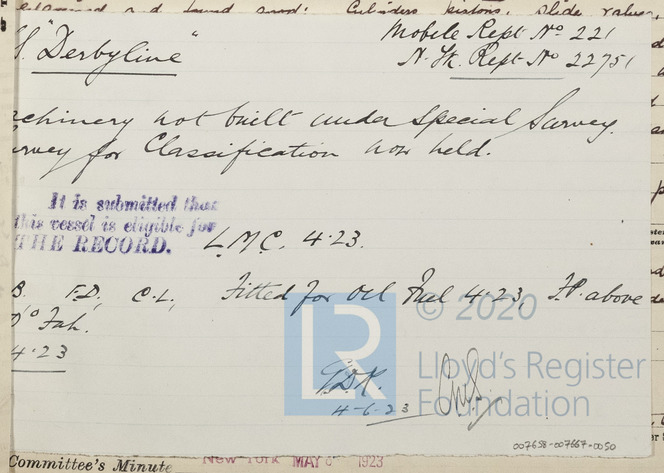 examined and found good: Cylinders, pistons, slide valves,
S. "Derbyline"
Mobile Rept No. 221
N. Yk. Rept No 22751
achinery not built under Special Survey.
urvey for Classification now held.
It is submitted that
this vessel is eligible for
THE RECORD.
L.M.C. 4.23.
B. F.D, C.L, Fitted for Oil Fuel 4.23, F.P. above
0° Fah.
4.23
© 2020
LR
Lloyd's Register
Foundation
4-6-23
007658-007667-0050
Committee's Minute
New York MAY 1923